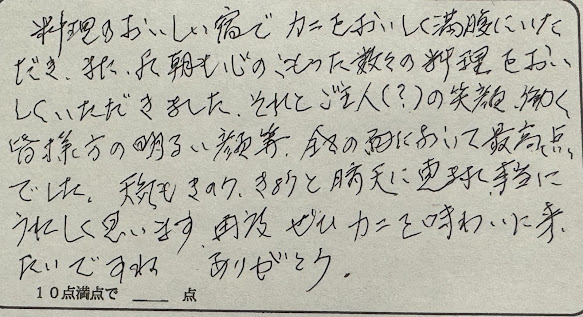 料理のおいしい宿でカニをおいしく満腹にいた
だき、また、翌朝も心のこもった数々の料理をおい
しくいただきました。それとご主人(?)の笑顔、働く
皆様方の明るい顔等、全ての面において最高点
でした。天気もきのう、きょうと晴天に恵まれ本当に
うれしく思います。再度ぜひカニを味わいに来
たいですね ありがとう。
10点満点で ___ 点